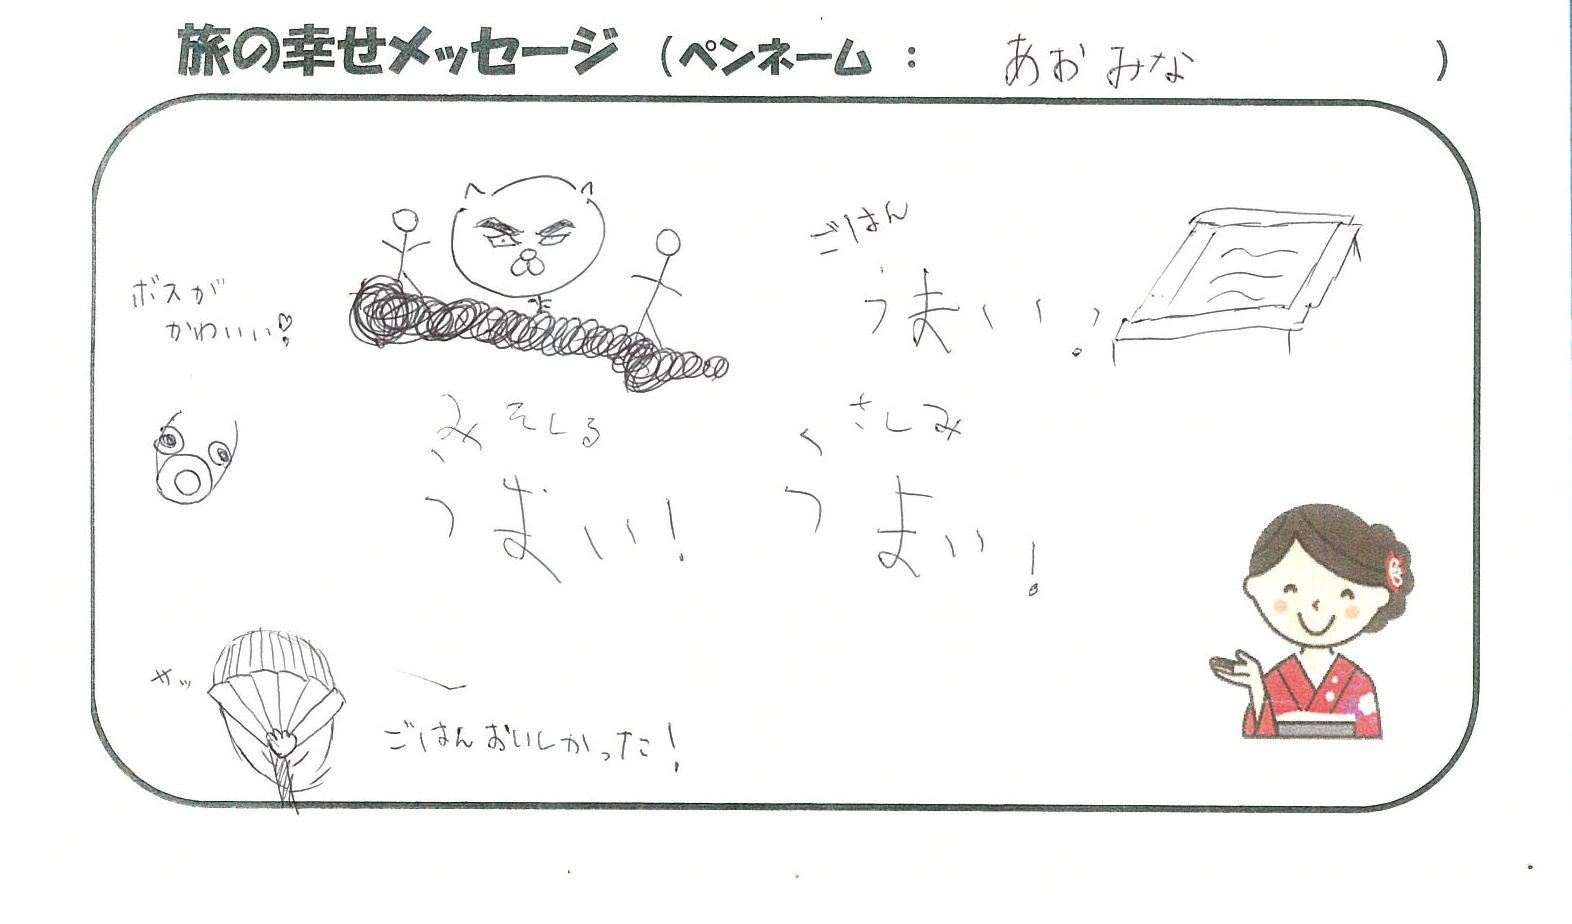 旅の幸せメッセージ (ペンネーム : あおみな )
ボスが
かわいい!
ごはん
うまい!
みそしる
うまい!
さしみ
うまい!
ごはんおいしかった!